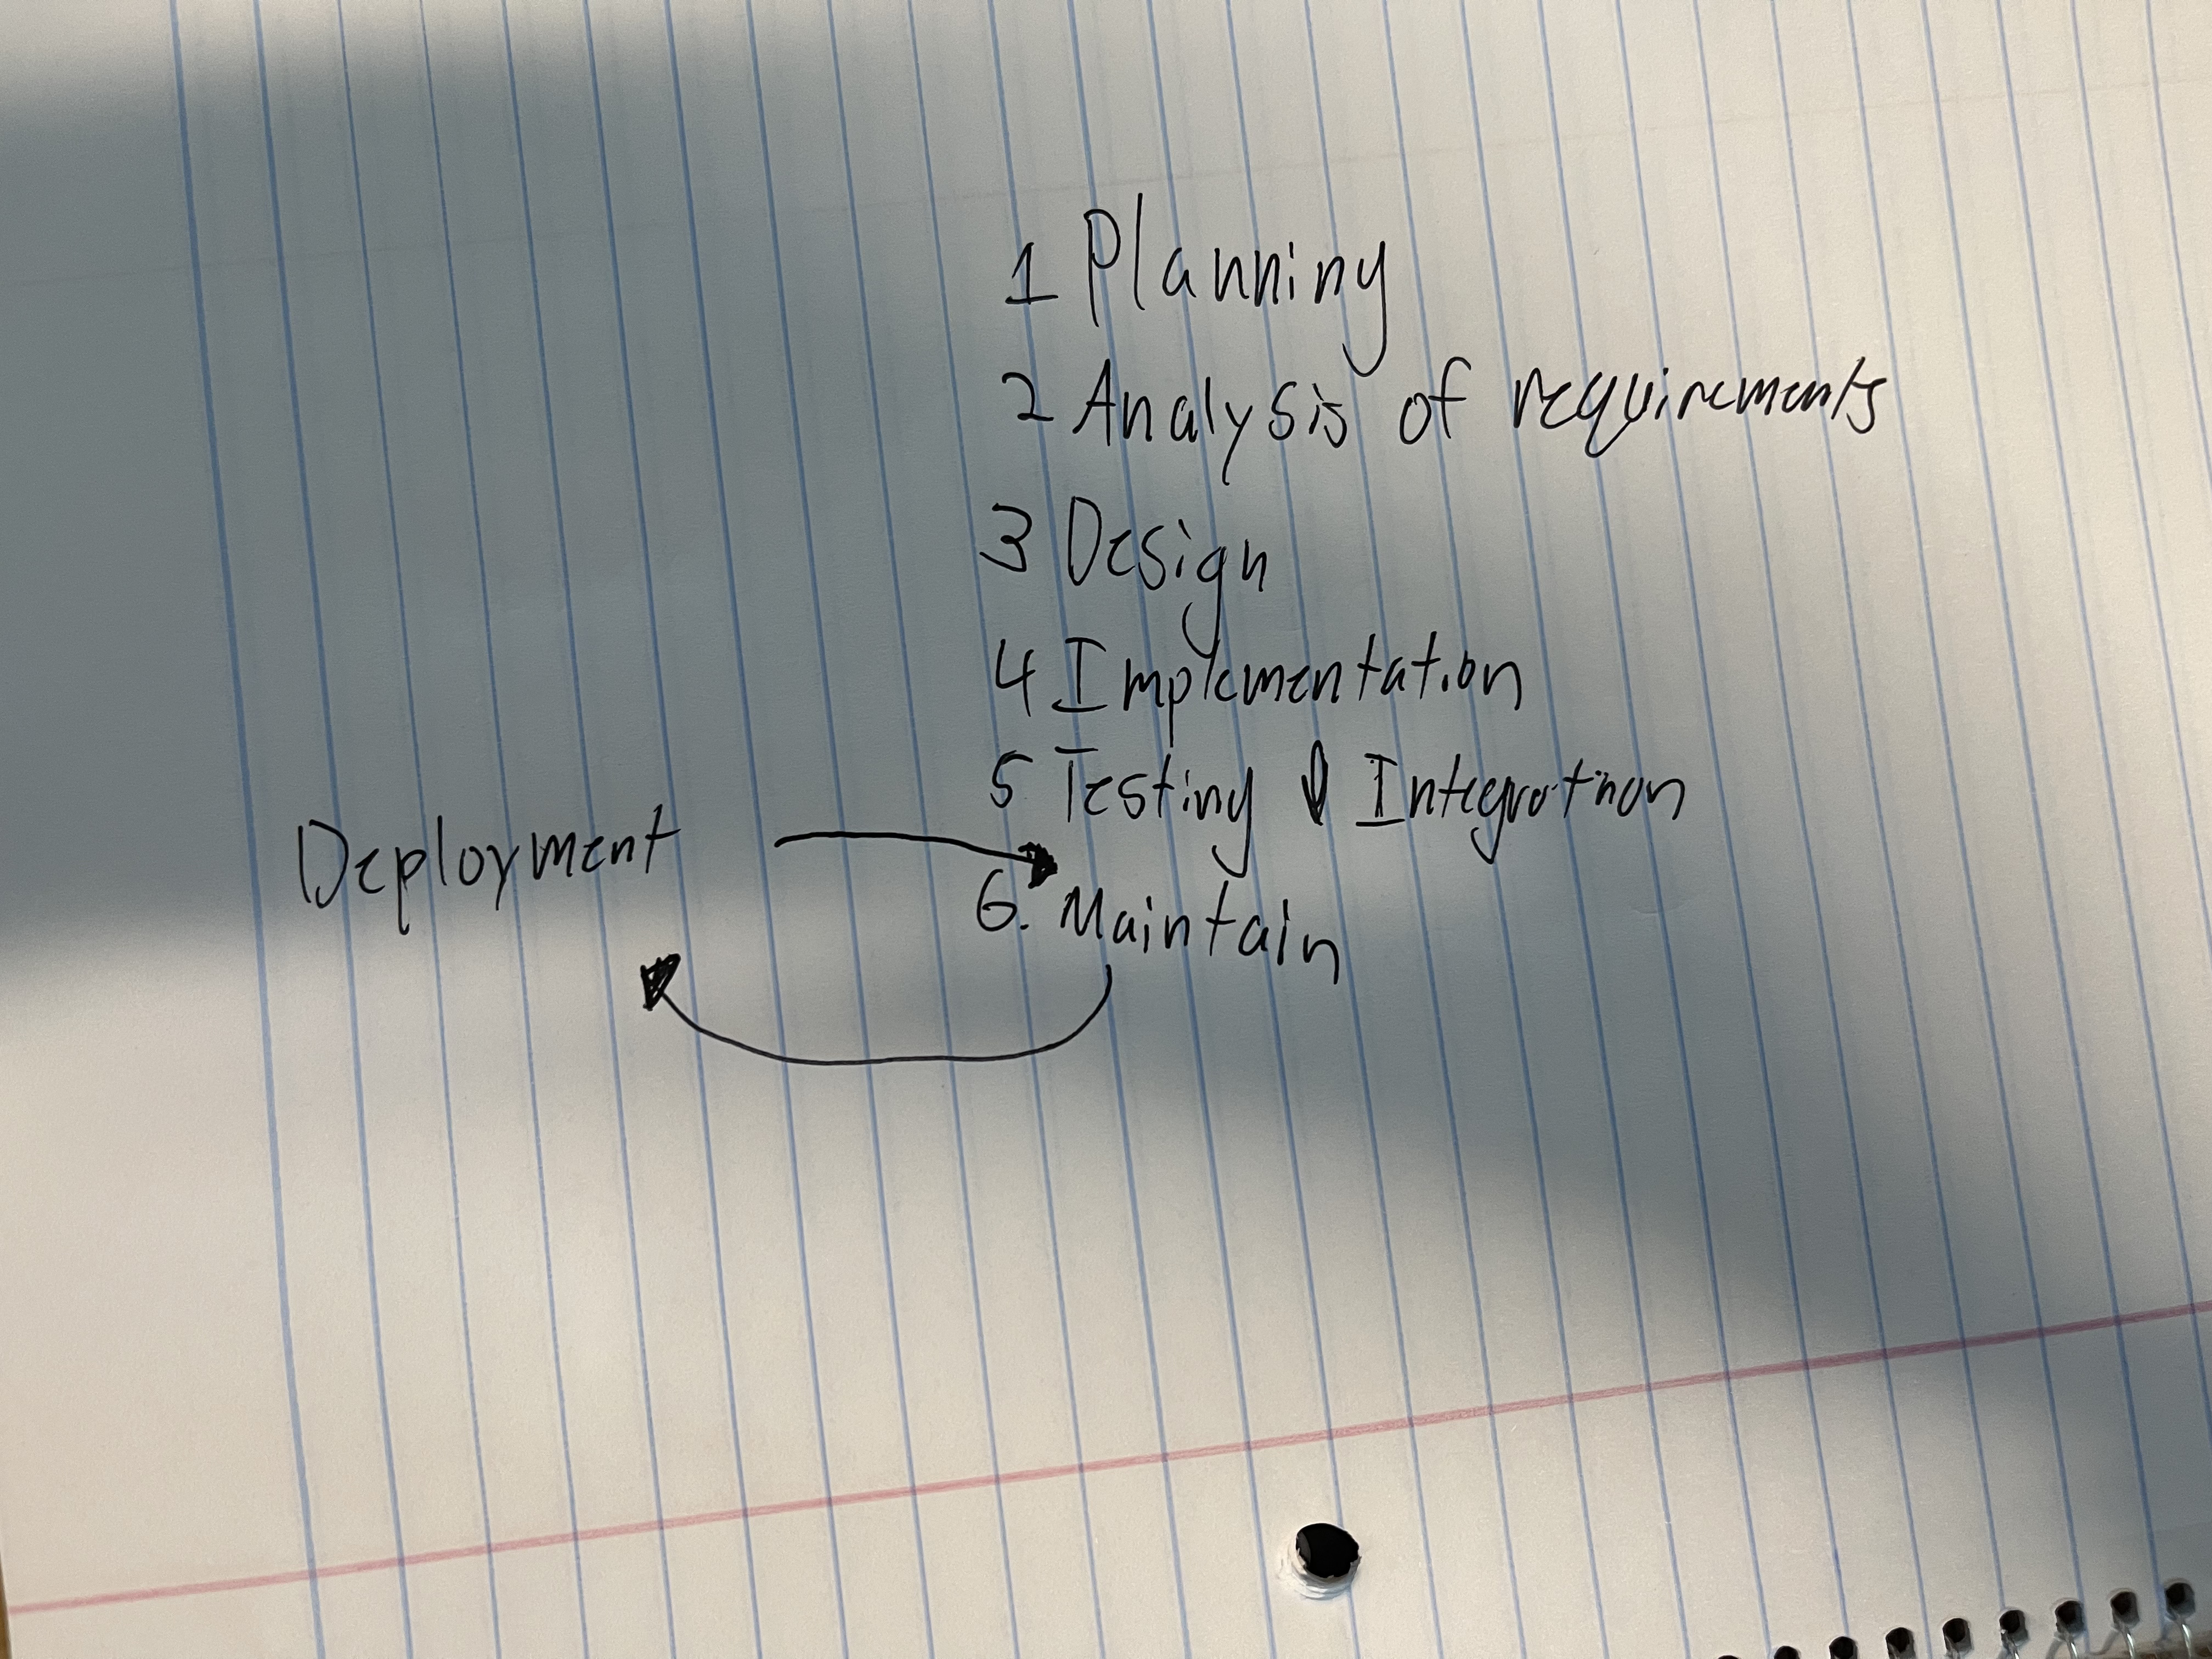 1 Planning
2 Analysis of requirements
3 Design
4 Implementation
5 Testing & Integration
Deployment
6. Maintain